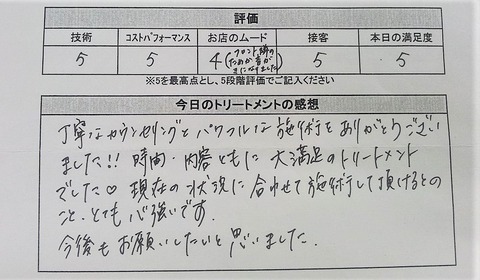 評価
技術 コストパフォーマンス お店のムード 接客 本日の満足度
5 5 4(フロント横のためか音が気になりました) 5 5
※5を最高点とし、5段階評価でご記入ください
今日のトリートメントの感想
丁寧なカウンセリングとパワフルな施術をありがとうござい
ました!! 時間・内容ともに大満足のトリートメント
でした♡ 現在の状況に合わせて施術して頂けるとの
こと、とても心強いです。
今後もお願いしたいと思いました。